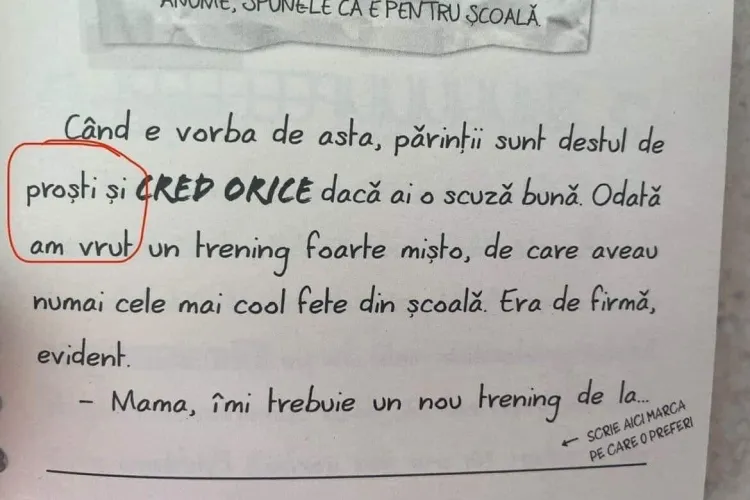 ANUME, SPUNE-LE CĂ E PENTRU ȘCOALĂ.
Când e vorba de asta, părinții sunt destul de
proști și CRED ORICE dacă ai o scuză bună. Odată
am vrut un trening foarte mișto, de care aveau
numai cele mai cool fete din școală. Era de firmă,
evident.
– Mama, îmi trebuie un nou trening de la...
← SCRIE AICI MARCA
PE CARE O PREFERI